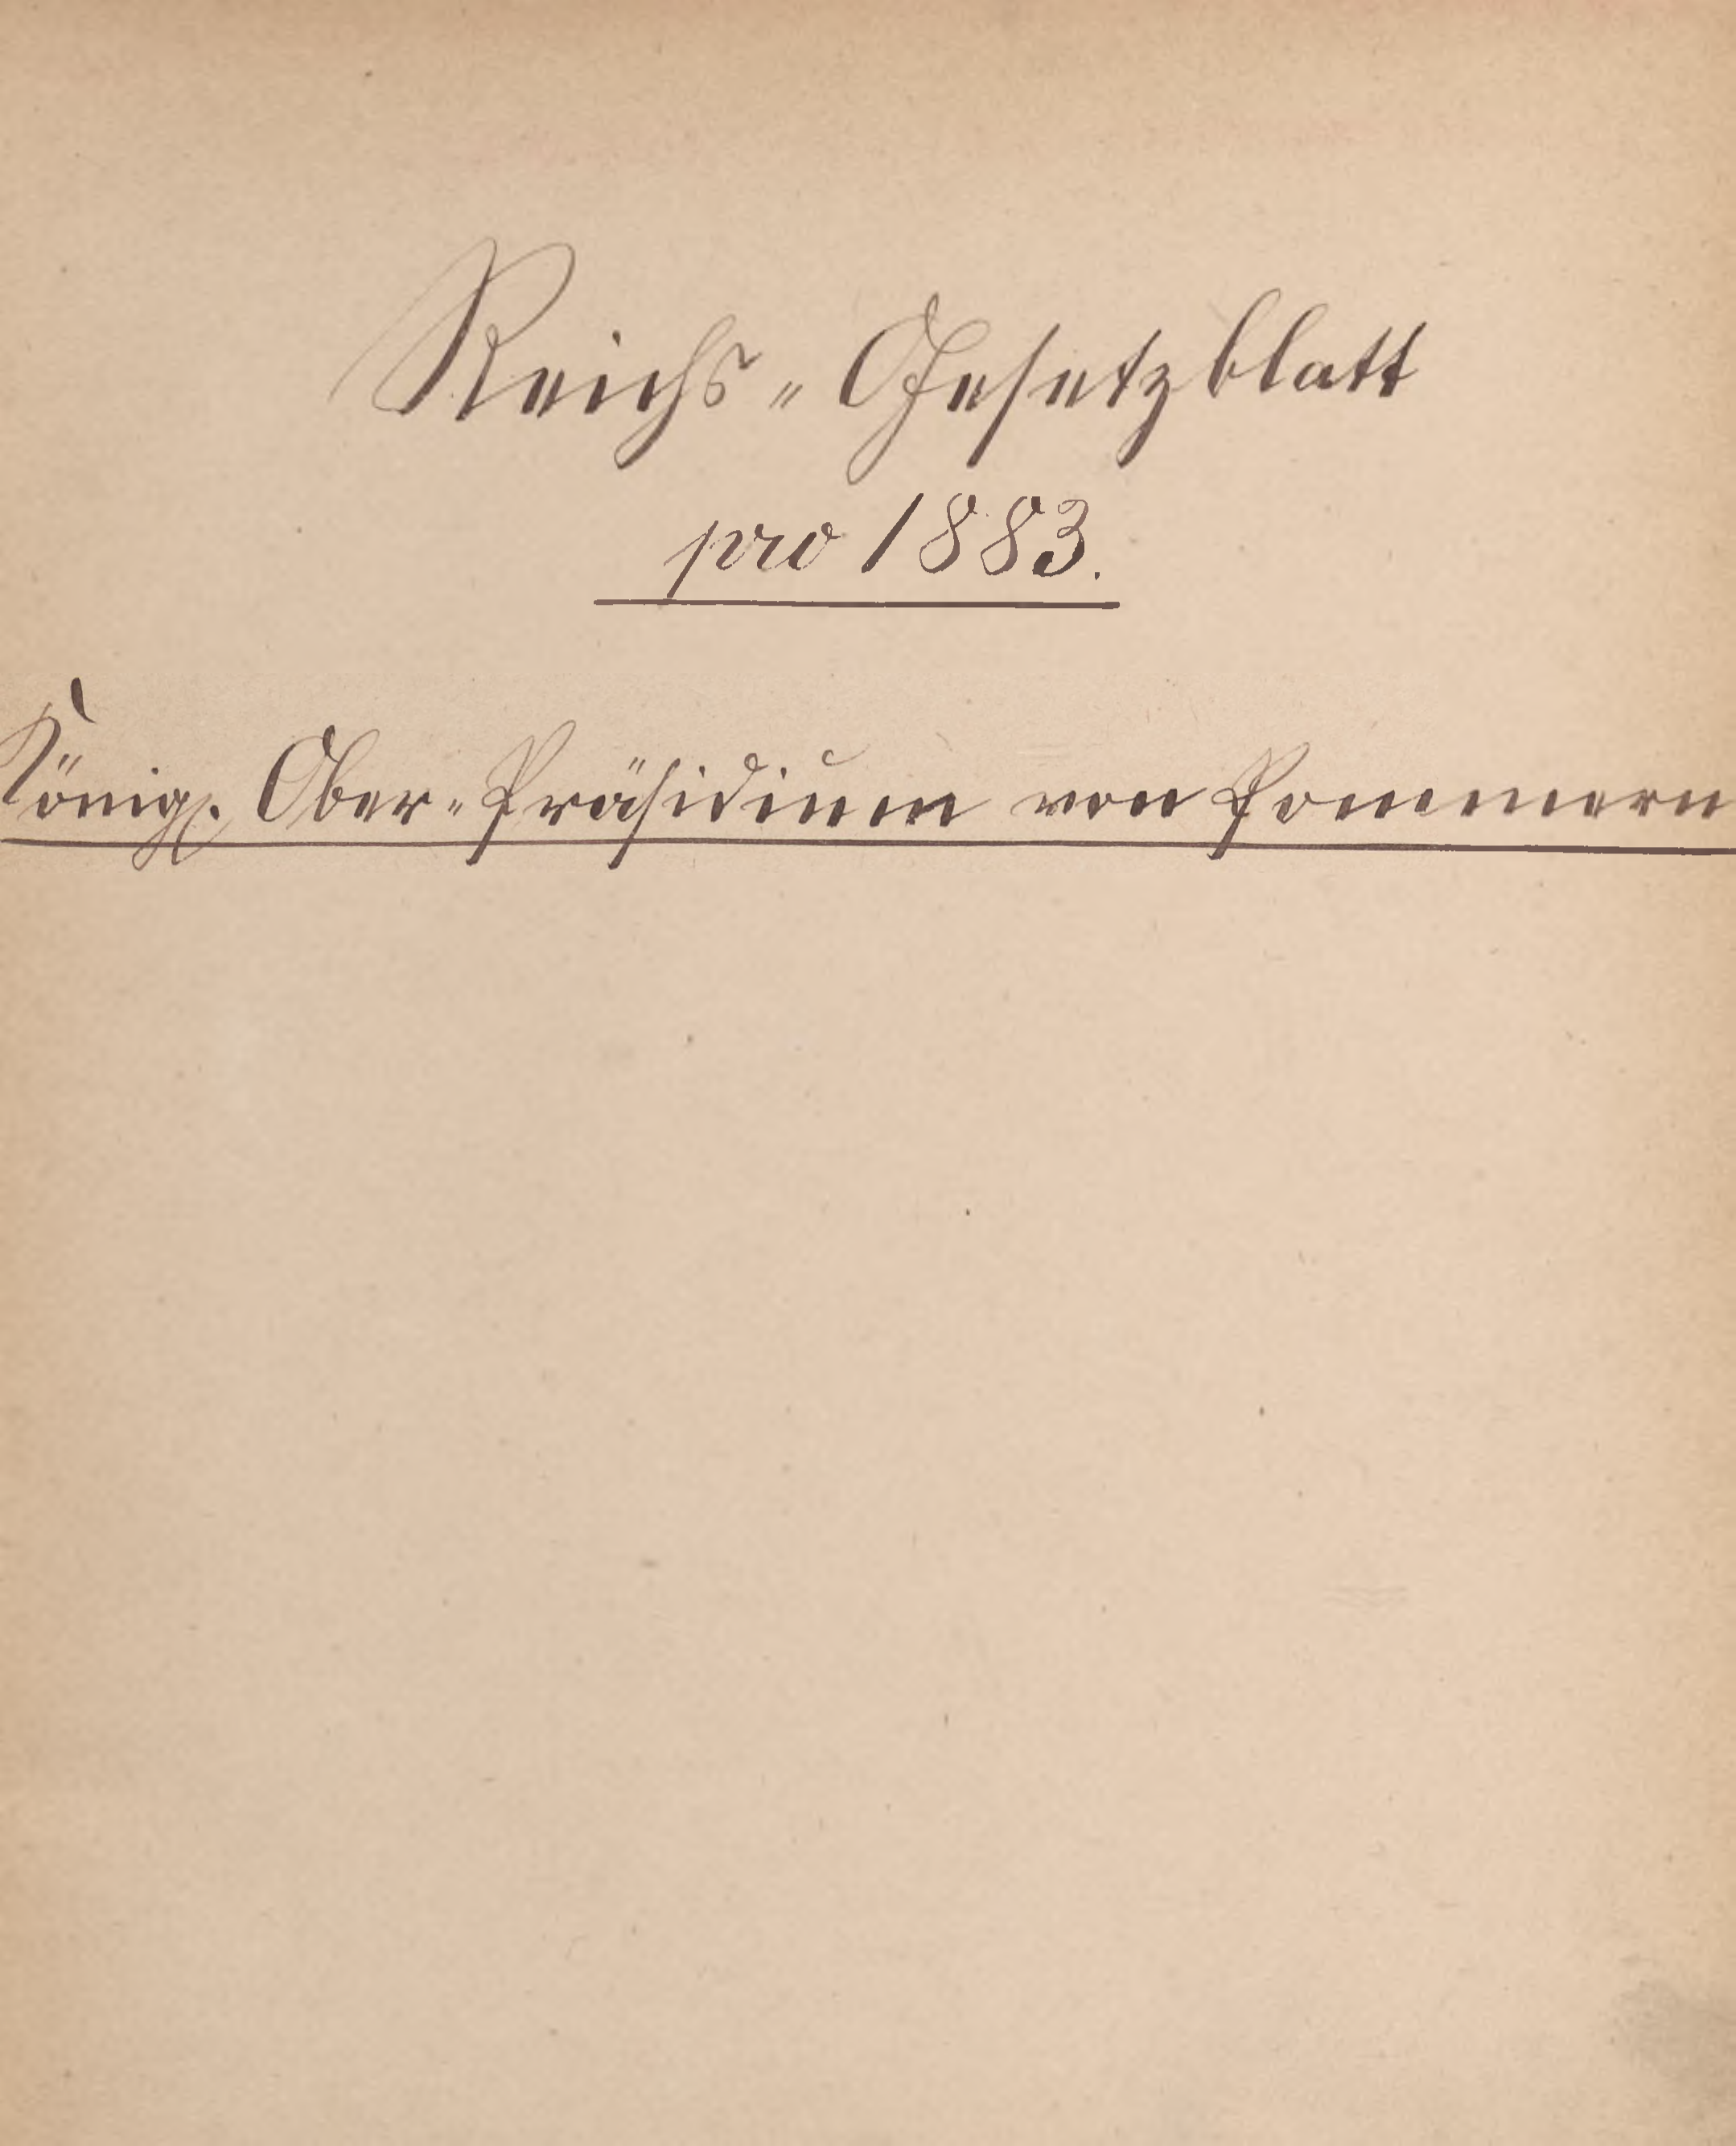 Reichs-Gesetzblatt
pro 1883.
Königl. Ober-Präsidium von Pommern